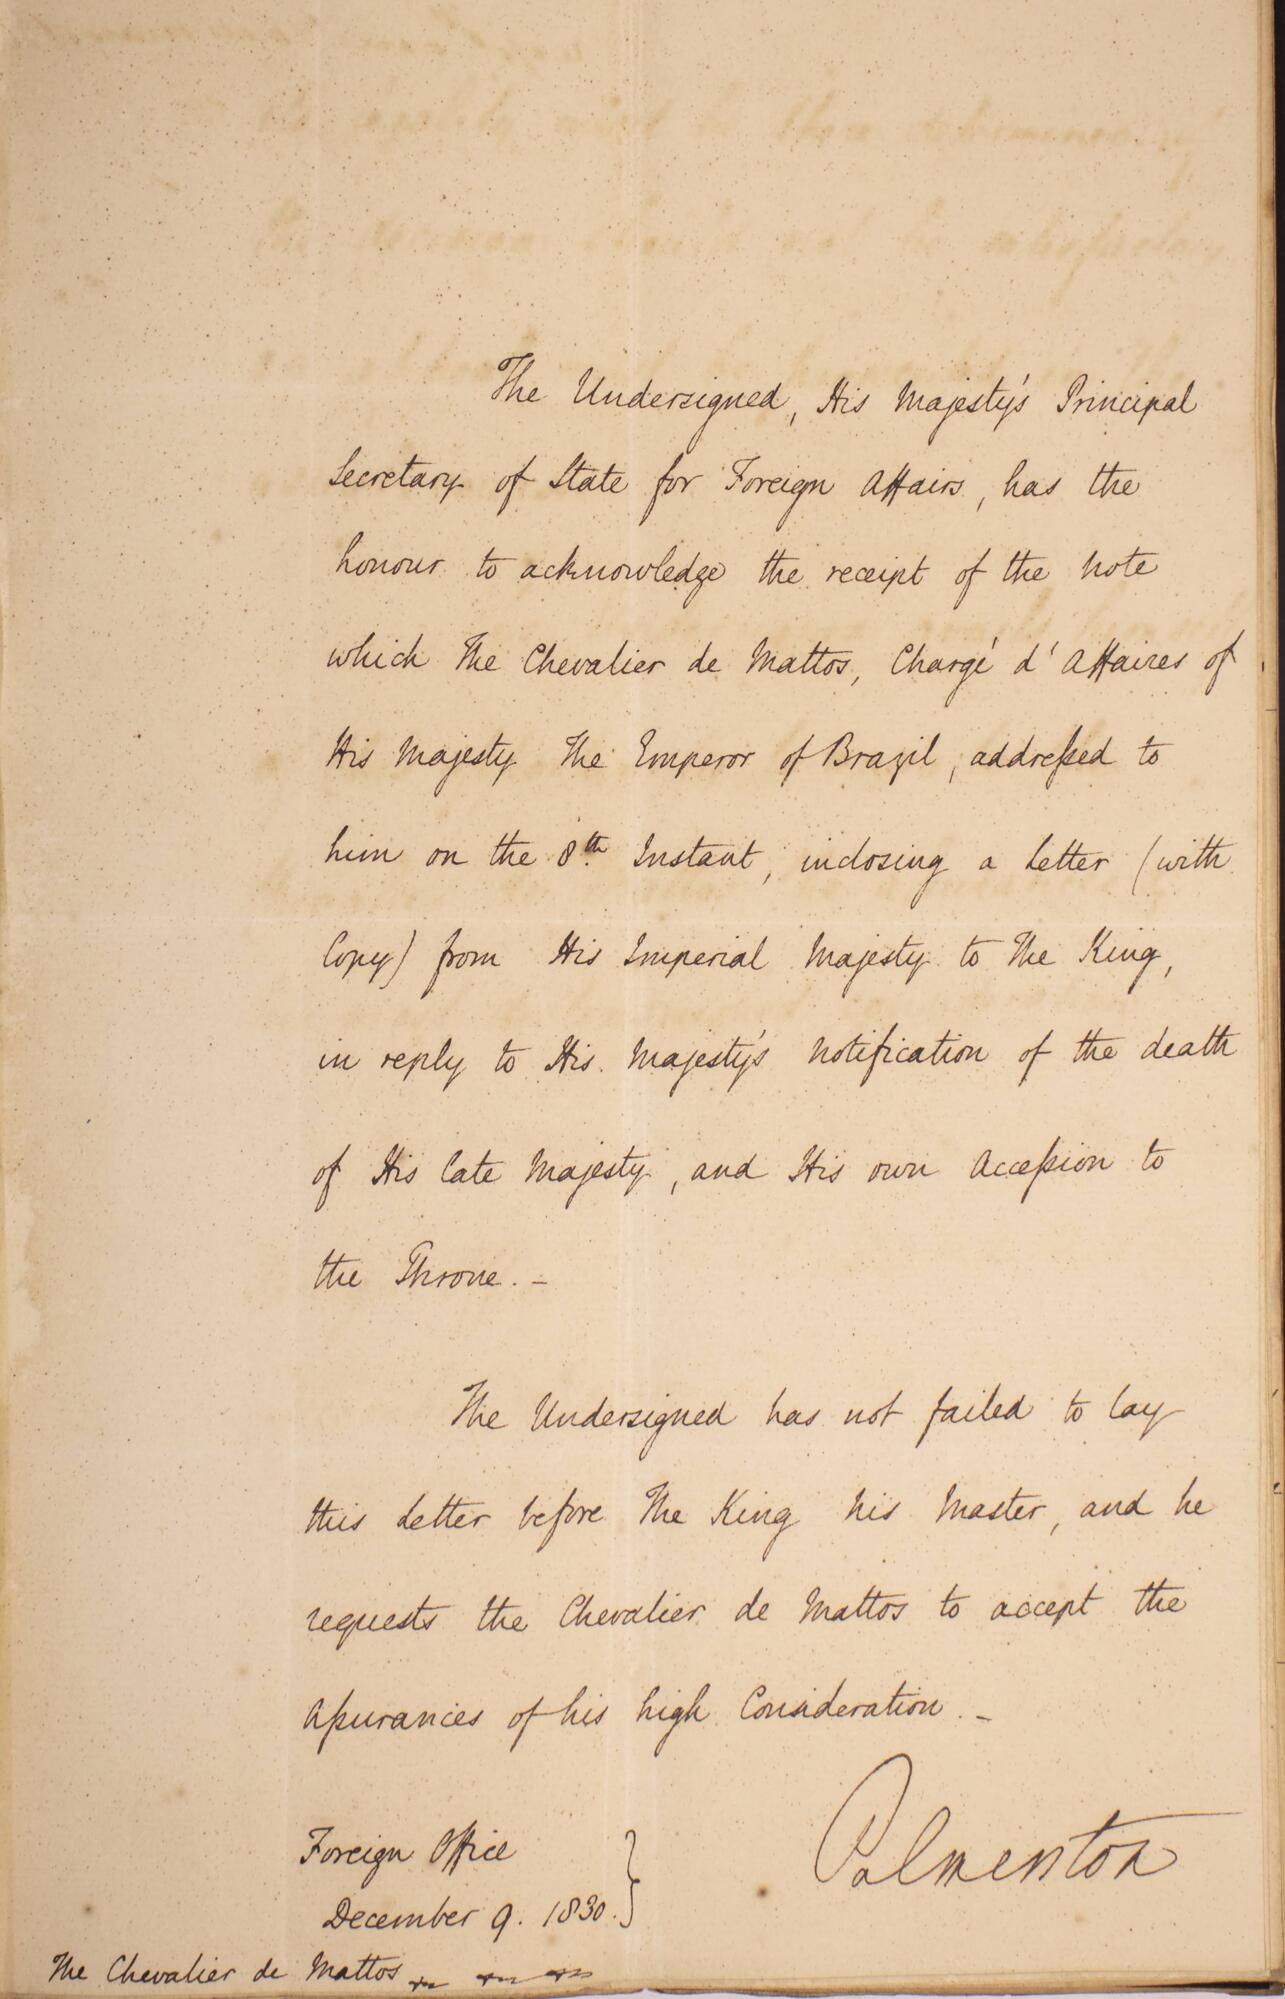 The Undersigned, His Majesty's Principal
Secretary of State for Foreign Affairs, has the
honour to acknowledge the receipt of the Note
which The Chevalier de Mattos, Chargé d'Affaires of
His Majesty The Emperor of Brazil, addreſsed to
him on the 8th Instant, inclosing a Letter (with
Copy) from His Imperial Majesty to The King,
in reply to His Majesty's Notification of the death
of His late Majesty, and His own Acceſsion to
the Throne. -
The Undersigned has not failed to lay
this Letter before The King his Master, and he
requests the Chevalier de Mattos to accept the
Aſsurances of his high Consideration. -
Palmerston
Foreign Office
December 9. 1830.
The Chevalier de Mattos